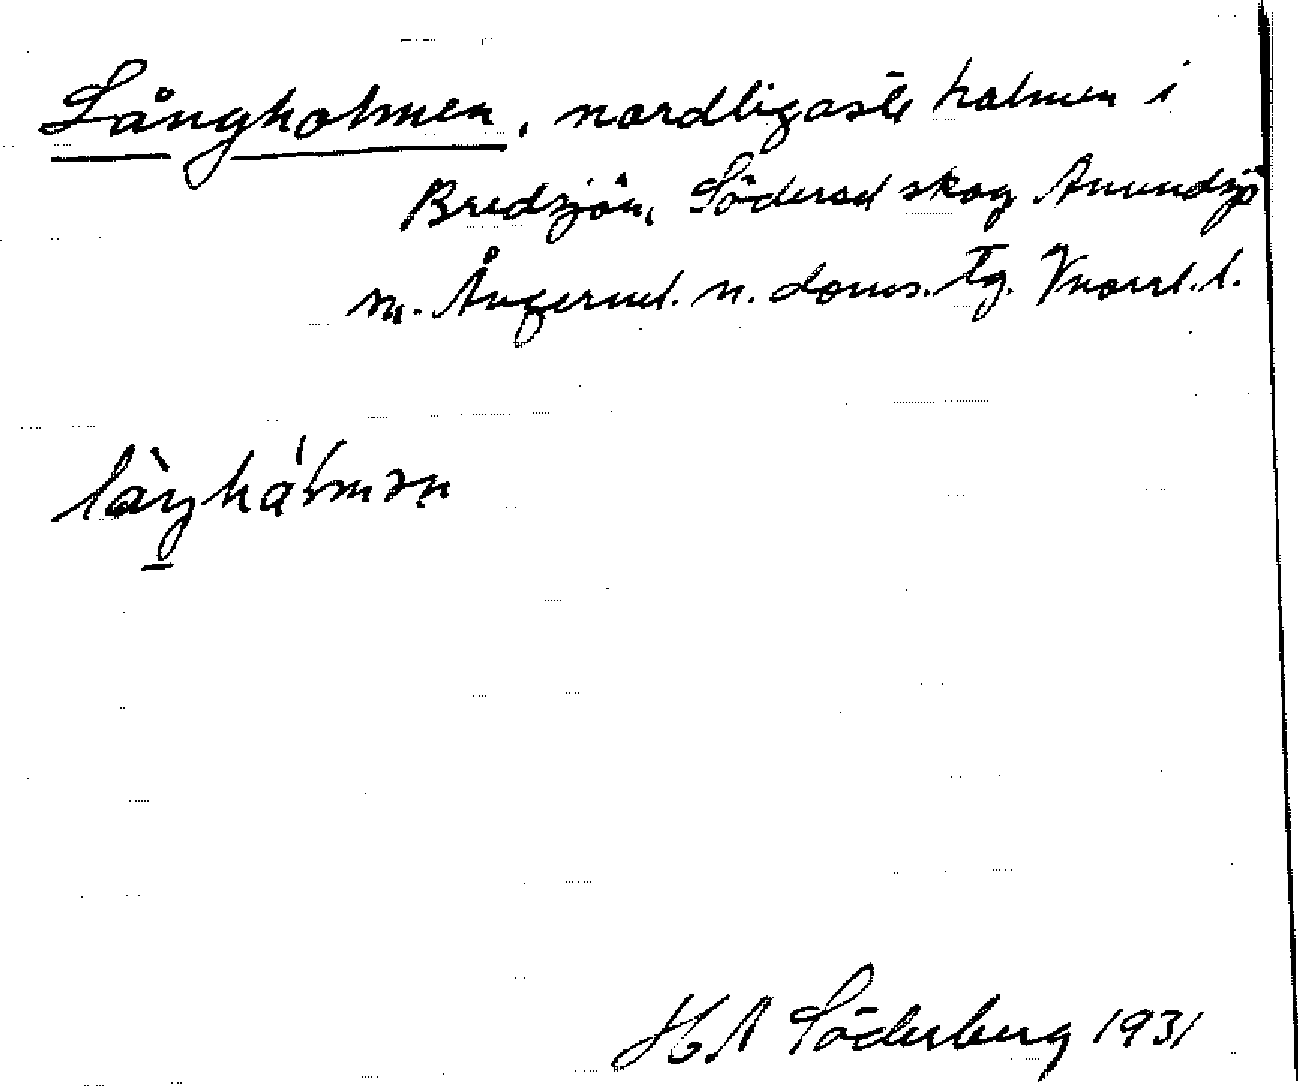 Långholmen, nordligaste holmen i
Bredsjön, Söderå skog Anundsjö
sn. Ångerml. n. doms. tg. Vnorrl. l.
H A Söderberg 1931